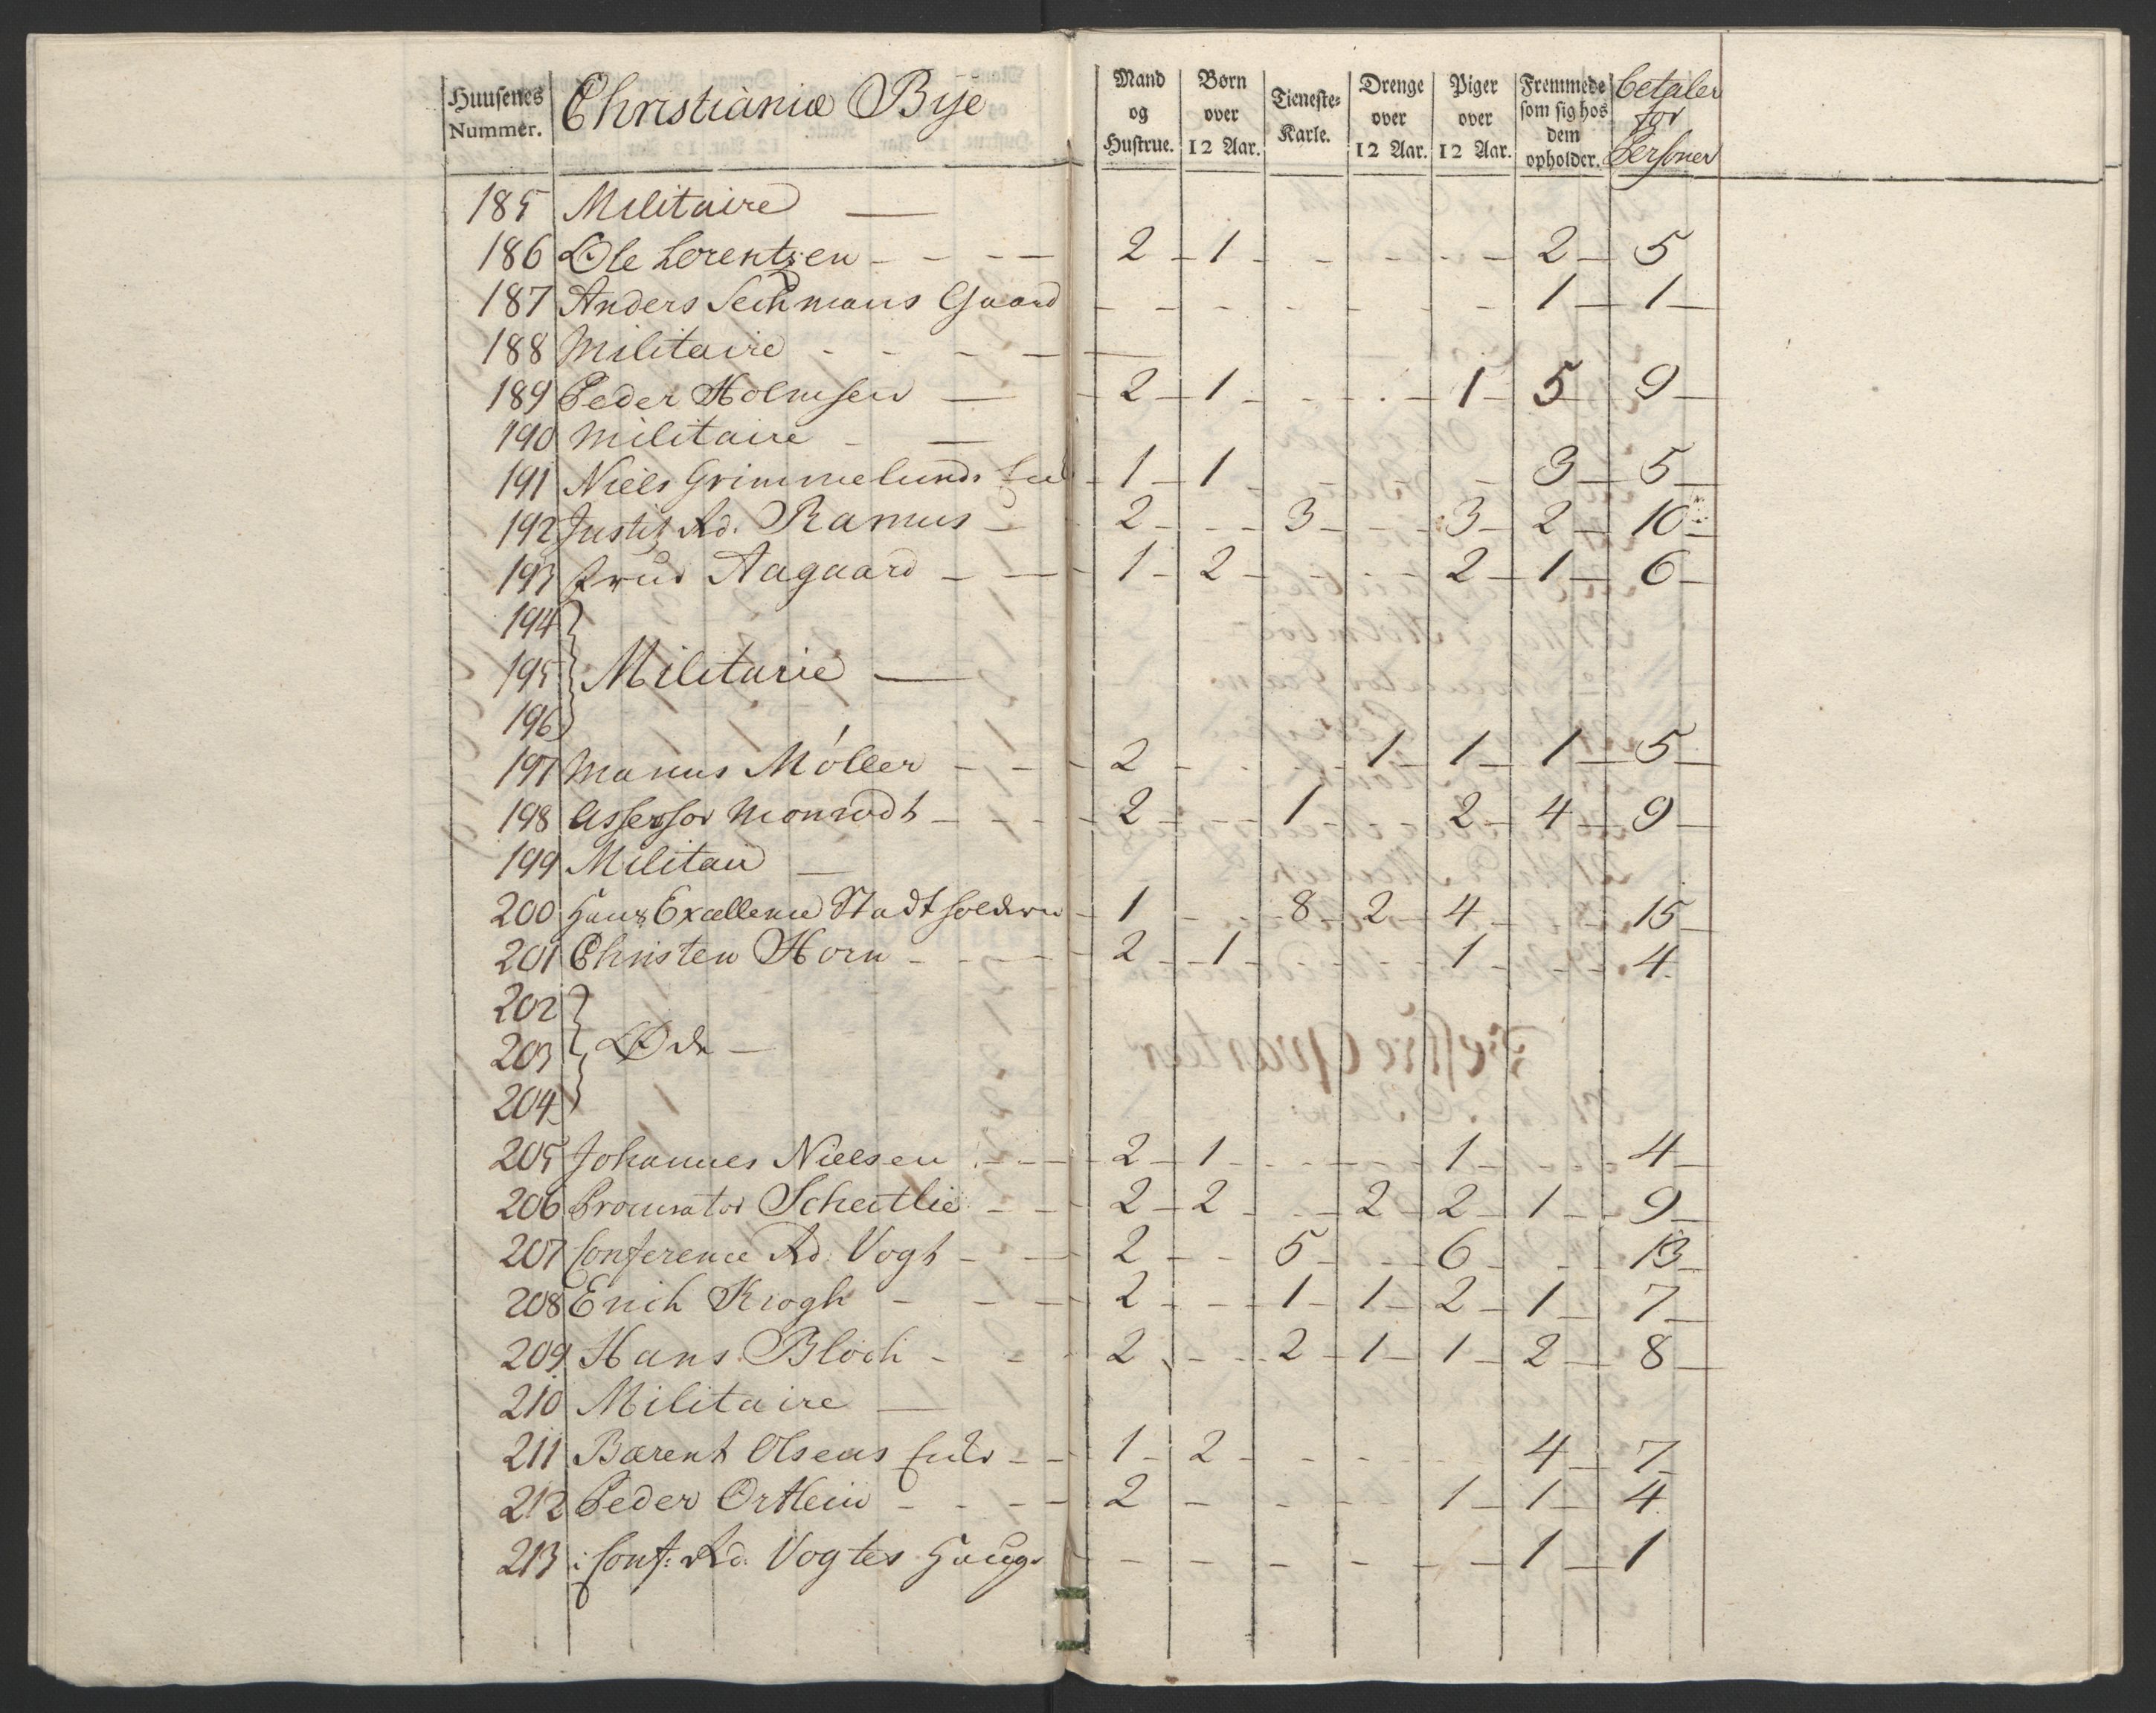 Huusenes Nummer. Christianiæ Bye Mand og Hustrue. Børn over 12 Aar. Tieneste-Karle. Drenge over 12 Aar. Piger over 12 Aar. Fremmede som sig hos dem opholder. betaler for Personer
185 Militaire —
186 Ole Lorentzen - - - - 2 - 1 - - - - - 2 - 5
187 Anders Gaard - - - - - - - 1 - 1 -
188 Militaire - - - - -
189 Peder Holmsen - 2 - 1 - - - - 1 - 5 9 -
190 Militaire - -
191 Niels Grimmelunds 1 - 1 - - - - 3 - 5 -
192 Justiz Rd. Ramus - 2 - - - 3 - - - 3 - 2 - 10 -
193 Frue Aagaard - - 1 - 2 - - - - 2 - 1 - 6 -
194
195 Militarie —
196
197 Manus Möller - - - 2 - - - - 1 - 1 - 1 - 5 -
198 Assessor Monrodt - - - - 2 - - - 1 - - 2 - 4 - 9 -
199 Militair —
200 Hans Excellence Stadtholderen - 1 - - - 8 - 2 - 4 - - 15 -
201 Christen Horn - - - - 2 - 1 - - - - 1 - - - - 4
202
203 Øde —
204
205 Johannes Nielsen - - - 2 - 1 - - - - - 1 - - - - 4 -
206 Procurator Scheitlie - - - 2 - 2 - - - 2 - 2 - 1 - - 9 -
207 Conference Rd: Vogt - - - 2 - - 5 - - - 6 - - - 13 -
208 Erich Krogh - - - 2 - - - 1 - 1 - 2 - 1 - 7 -
209 Hans Bloch - - - 2 - - - 2 - 1 - 1 - 2 - 8 -
210 Militaire —
211 Barent Olsens Enke - - 1 - 2 - - - - - 4 - 7 -
212 Peder Ortlein - - - - 2 - - - - 1 - 1 - 4
213 i Conf: Rd. Vogtes Hauge - - - - - - - 1 - 1